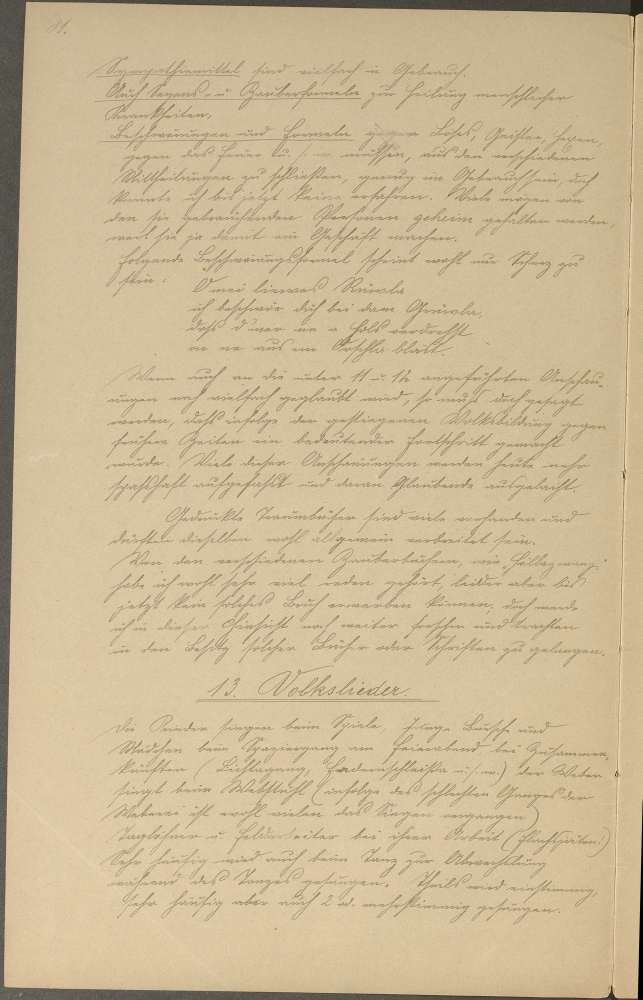 81.
Sympathiemittel sind vielfach in Gebrauch.
Auch Segens- u Zauberformeln zur Heilung menschlicher
Krankheiten.
Beschwörungen und Formeln gegen Böses, Geister, Hexen,
gegen das Feuer u. s. w. müssen, aus den verschiedenen
Mittheilungen zu schließen, genug im Gebrauch sein, doch
konnte ich bis jetzt keine erfahren. Viele mögen von
den sie gebrauchenden Personen geheim gehalten werden,
weil sie ja damit ein Geschäft machen.
Folgende Beschwörungsformel scheint wohl nur Scherz zu
sein: O mei liewes
ich beschwöre dich bei dem
dass d' mer ne a Hols verdrehst
on ne aus em
Wenn auch an die unter 11 u. 12 angeführten Anschau-
ungen noch vielfach geglaubt wird, so muss doch gesagt
werden, dass infolge der gestiegenen Volksbildung gegen
frühere Zeiten ein bedeutender Fortschritt gemacht
wurde. Viele dieser Anschauungen werden heute mehr
spasshaft aufgefasst und daran Glaubende ausgelacht.
Gedruckte Traumbücher sind viele vorhanden und
dürften dieselben wohl allgemein verbreitet sein.
Von den verschiedenen Zauberbüchern, wie Höllezwang,
habe ich wohl sehr viel reden gehört, leider aber bis
jetzt kein solches Buch erwerben können, doch werde
ich in dieser Hinsicht noch weiter forschen und trachten
in den Besitz solcher Bücher oder Schriften zu gelangen.
13. Volkslieder.
Die Kinder singen beim Spiele, junge Bursche und
Mädchen beim Spaziergang am Feierabend bei Zusammen-
künften (Lichtagang, Federnschleißa u. s. w.) der Weber
singt beim Webstuhl (infolge des schlechten Ganges der
Weberei ist wohl vielen das Singen vergangen)
Taglöhner u. Feldarbeiter bei ihrer Arbeit (Flachsjäten.)
Sehr häufig wird auch beim Tanz zur Abwechslung
während des Tanzes gesungen. Theils wird einstimmig,
sehr häufig aber auch 2 od. mehrstimmig gesungen.